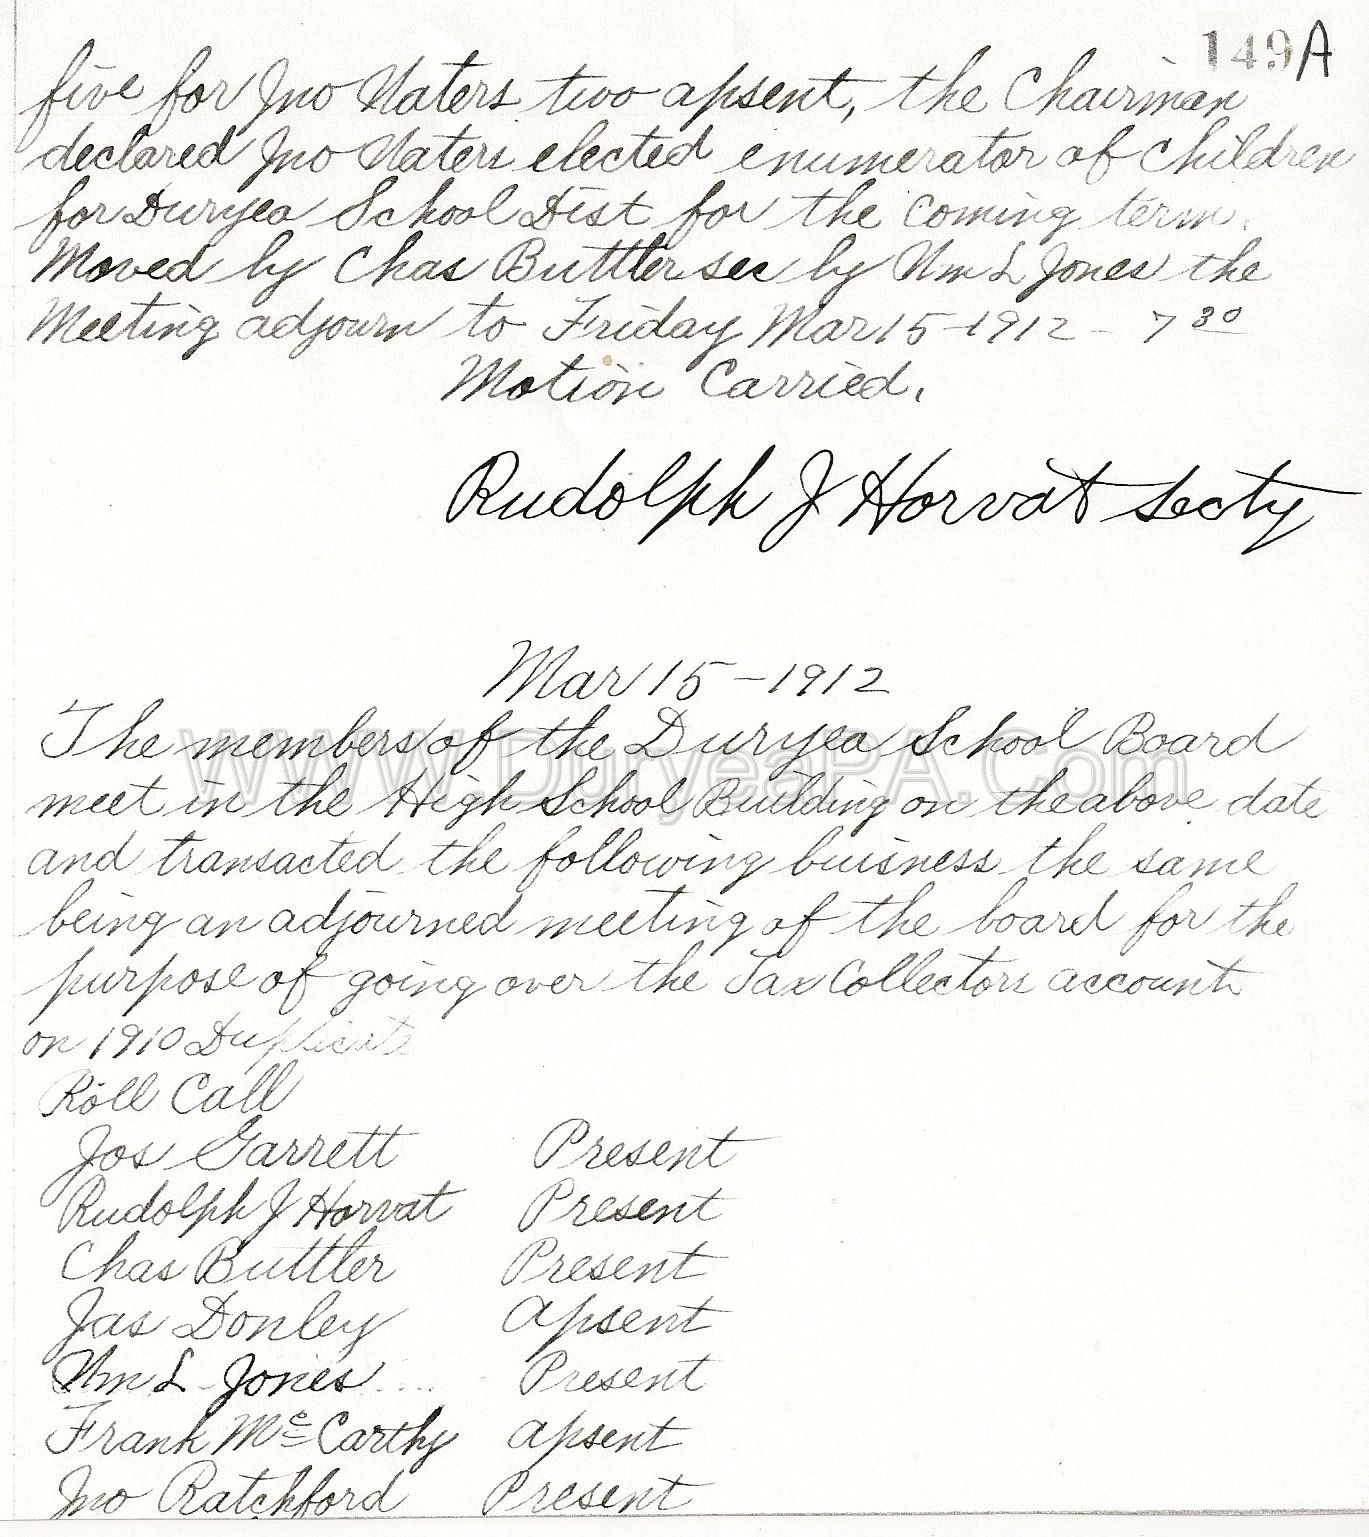 149A
five for Jno Waters two apsent, the Chairman
declared Jno Waters elected enumerator of Children
for Duryea School Dist for the Coming term.
Moved by Chas Buttler sec by Wm L Jones the
Meeting adjourn to Friday Mar 15-1912 - 7 30
Motion Carried.
Rudolph J Horvat Secty
Mar 15-1912
The members of the Duryea School Board
meet in the High School Building on the above date
and transacted the following buisness the same
being an adjourned meeting of the board for the
purpose of going over the Tax Collectors account
on 1910 Duplicate
Roll Call
Jos Garrett Present
Rudolph J Horvat Present
Chas Buttler Present
Jas Donley Apsent
Wm L Jones Present
Frank McCarthy Apsent
Jno Ratchford Present
www.DuryeaPA.Com